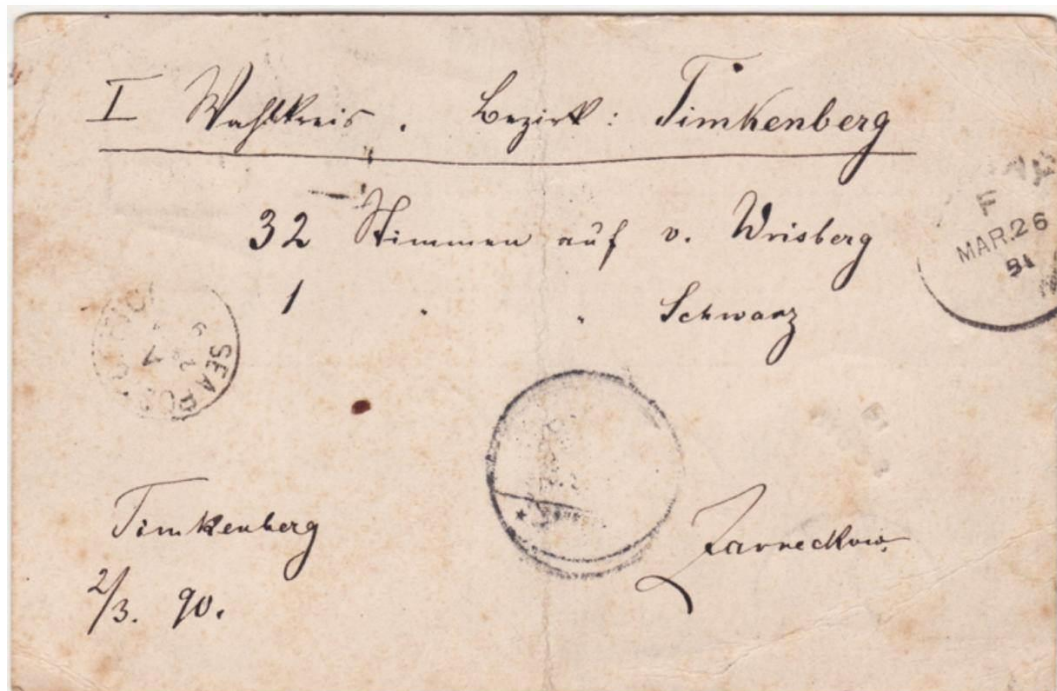 I Wahlkreis. Bezirk: Timkenberg
32 Stimmen auf v. Wrisberg
1 " " Schwarz
MAR.26
SEA POST
Timkenberg
2/3. 90.
Zarneckow